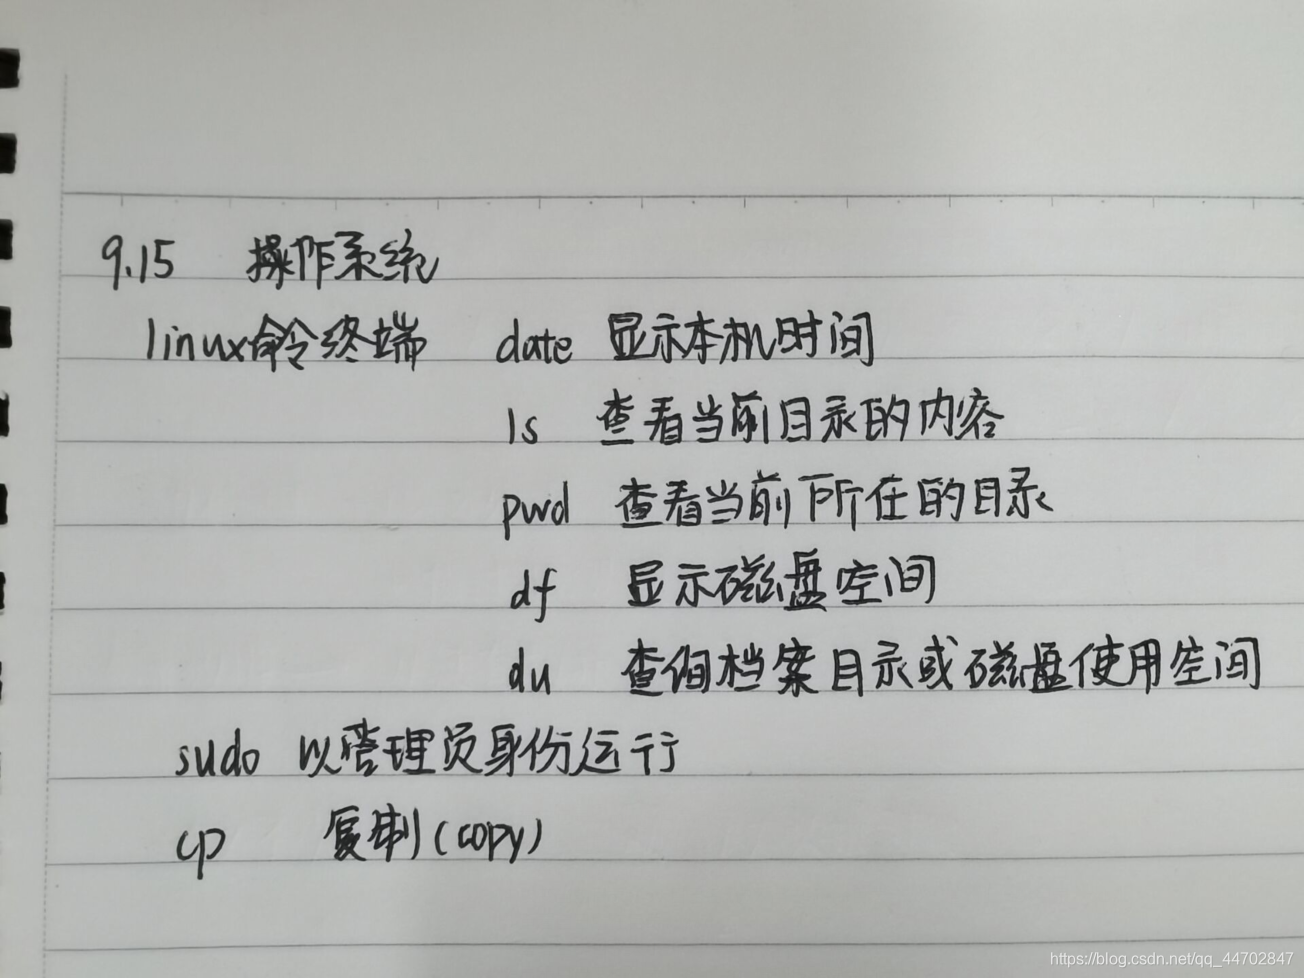 9.15 操作系统
linux命令终端 date 显示本机时间
ls 查看当前目录的内容
pwd 查看当前下所在的目录
df 显示磁盘空间
du 查询档案目录或磁盘使用空间
sudo 以管理员身份运行
cp 复制(copy)
https://blog.csdn.net/qq_44702847